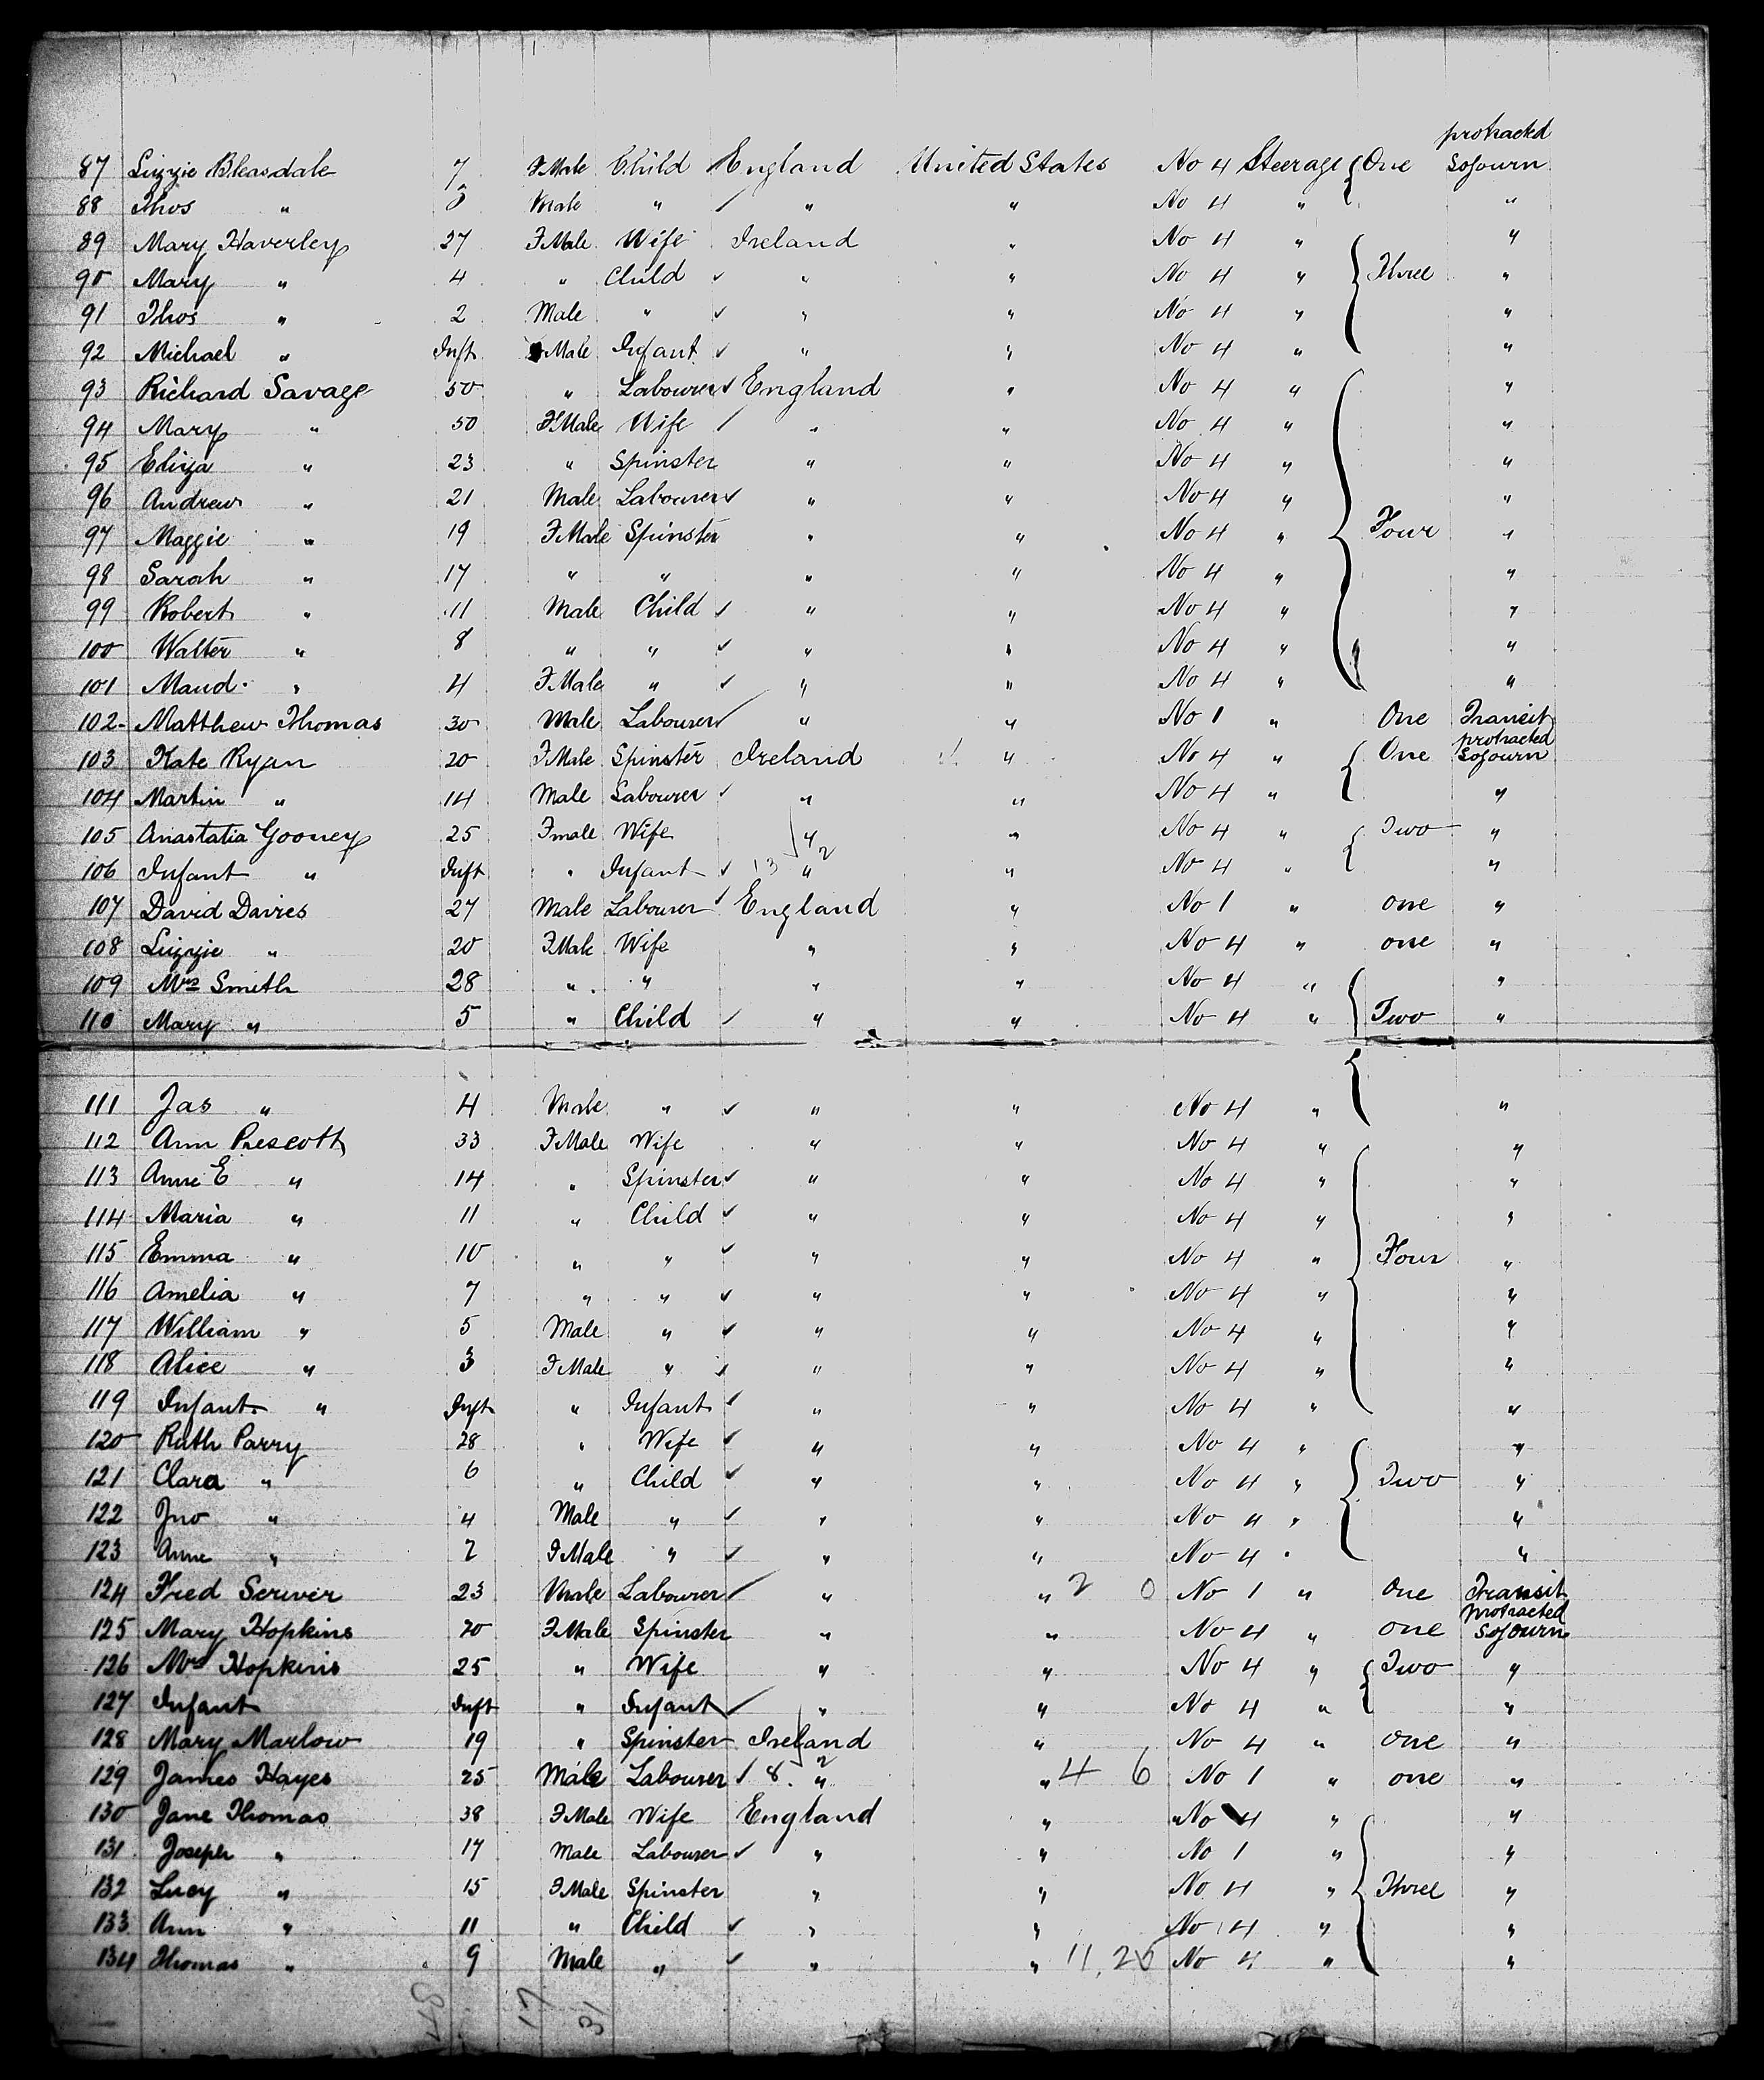 protracted
87 Lizzie Bleasdale 7 FMale Child England United States No 4 Steerage One Sojourn
88 Thos " Male " " " No 4 " "
89 Mary Haverley 27 FMale Wife Ireland " No 4 " "
90 Mary " 4 " Child " " No 4 " Three "
91 Thos " 2 Male " " " No 4 " "
92 Michael " Inft Male Infant " " No 4 " "
93 Richard Savage 50 " Labourer England " No 4 " "
94 Mary " 50 FMale Wife " " No 4 " "
95 Eliza " 23 " Spinster " " No 4 " "
96 Andrew " 21 Male Labourer " " No 4 " "
97 Maggie " 19 FMale Spinster " " No 4 " Four "
98 Sarah " 17 " " " " No 4 " "
99 Robert " 11 Male Child " " No 4 " "
100 Walter " 8 " " " " No 4 " "
101 Maud " 4 FMale " " " No 4 " "
102 Matthew Thomas 30 Male Labourer " " No 1 " One Transit
103 Kate Ryan 20 FMale Spinster Ireland " No 4 " One protracted Sojourn
104 Martin " 14 Male Labourer " " No 4 " "
105 Anastatia Gooney 25 Fmale Wife " " No 4 " Two "
106 Infant " Inft " Infant 13 2 " " No 4 " "
107 David Davies 27 Male Labourer England " No 1 " one "
108 Lizzie " 20 FMale Wife " " No 4 " one "
109 Mrs Smith 28 " " " " No 4 " "
110 Mary " 5 " Child " " No 4 " Two "
111 Jas " 4 Male " " " No 4 " "
112 Ann Prescott 33 FMale Wife " " No 4 " "
113 Anne E " 14 " Spinster " " No 4 " "
114 Maria " 11 " Child " " No 4 " "
115 Emma " 10 " " " " No 4 " Four "
116 Amelia " 7 " " " " No 4 " "
117 William " 5 Male " " " No 4 " "
118 Alice " 3 FMale " " " No 4 " "
119 Infant " Inft " Infant " " No 4 " "
120 Ruth Parry 28 " Wife " " No 4 " "
121 Clara " 6 " Child " " No 4 " Two "
122 Jno " 4 Male " " " No 4 " "
123 Anne " 2 FMale " " " No 4 " "
124 Fred Scriver 23 Male Labourer " " 2 0 No 1 " One Transit
125 Mary Hopkins 20 FMale Spinster " " No 4 " one protracted Sojourn
126 Mrs Hopkins 25 " Wife " " No 4 " Two "
127 Infant Inft " Infant " " No 4 " "
128 Mary Marlow 19 " Spinster Ireland " No 4 " one "
129 James Hayes 25 Male Labourer 8 2 " " 4 6 No 1 " one "
130 Jane Thomas 38 FMale Wife England " No 4 " "
131 Joseph " 17 Male Labourer " " No 1 " "
132 Lucy " 15 FMale Spinster " " No 4 " Three "
133 Ann " 11 " Child " " No 4 " "
134 Thomas " 9 Male " " " 11,20 No 4 " "
17 31